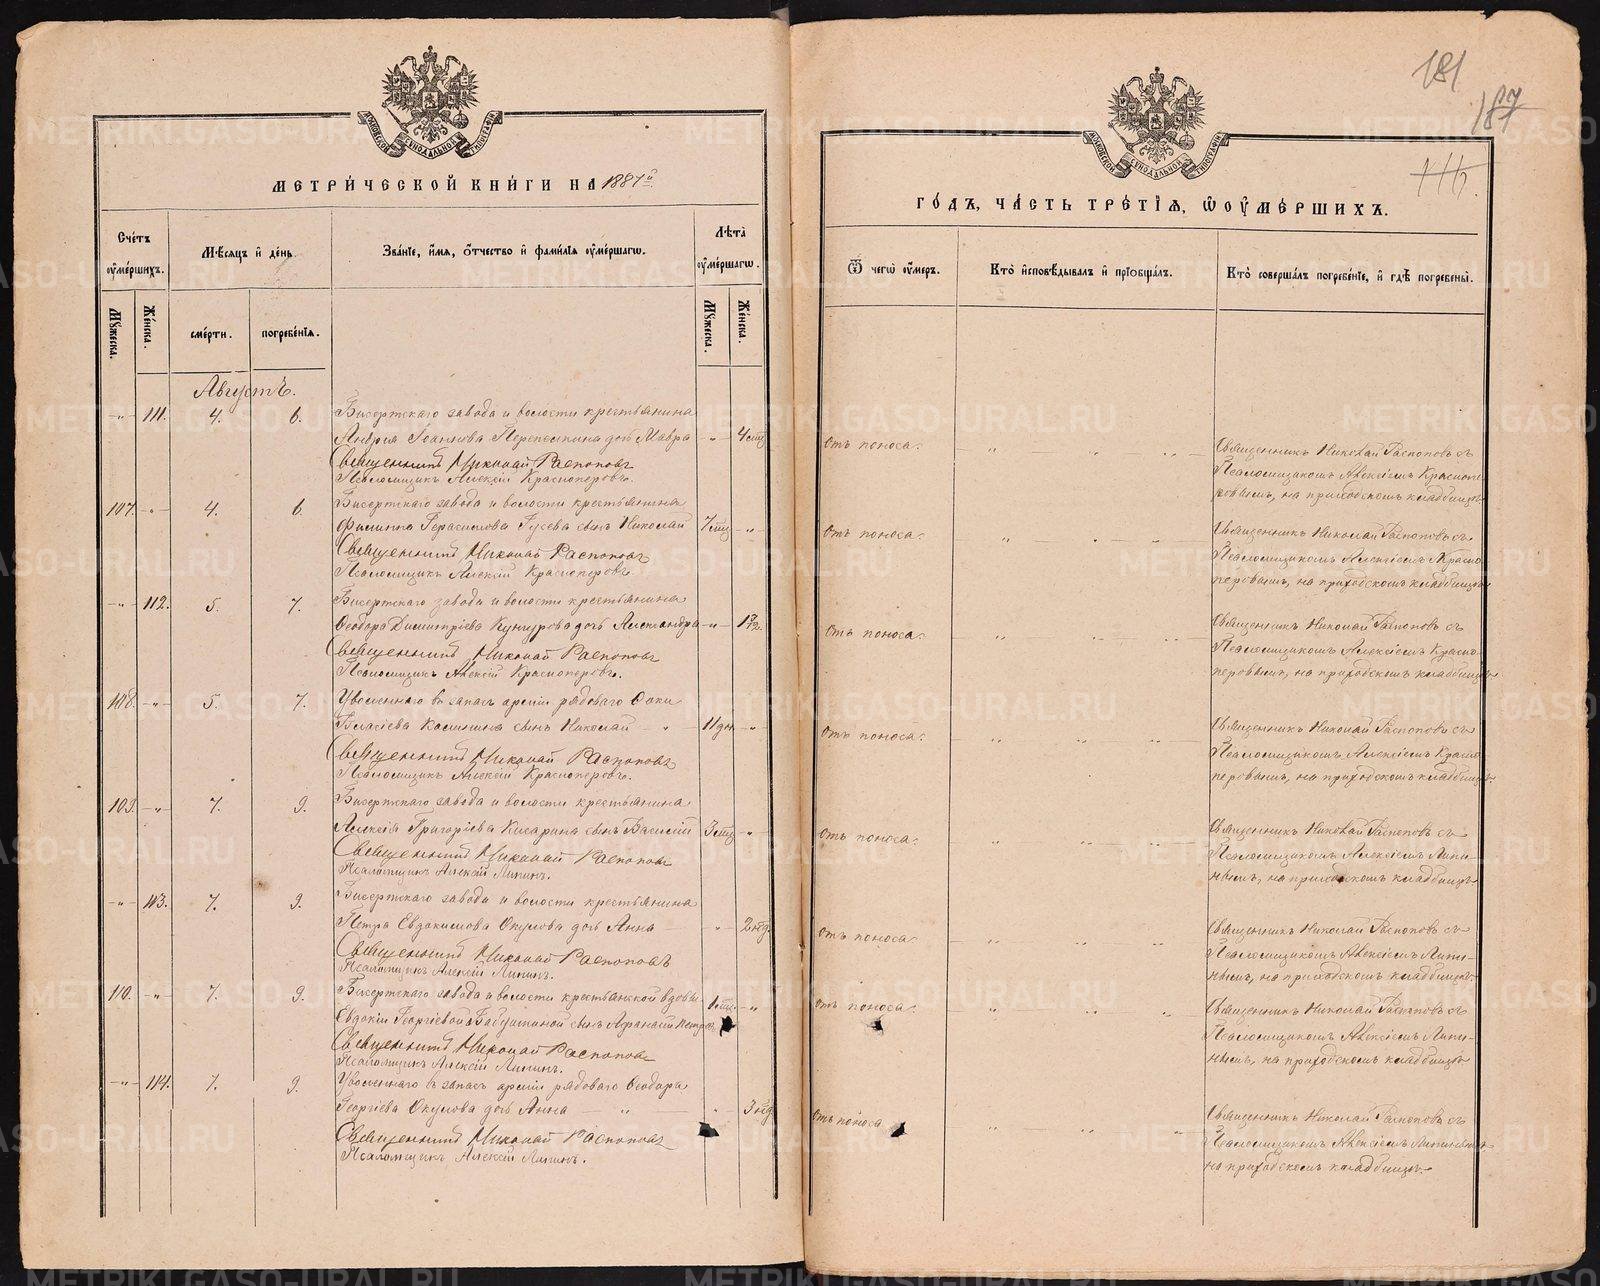 МЕТРИЧЕСКОЙ КНИГИ НА 1887й
Счетъ умершихъ.
Мѣсяцъ и день.
Званіе, имя, отчество и фамилія умершагѡ.
Лѣта умершагѡ.
Мужеска.
Женска.
смерти.
погребенія.
Мужеска.
Женска.
Августъ.
-"- 111. 4. 6. Бисертскаго завода и волости крестьянина
Андрея Іоаннова Перепелкина дочь Мавра -"- 4 мц.
Священникъ Николай Распоповъ
Псаломщикъ Алексій Красноперовъ.
107. -"- 4. 6. Бисертскаго завода и волости крестьянина
Филиппа Герасимова Гусева сынъ Николай 7 мц. -"-
Священникъ Николай Распоповъ
Псаломщикъ Алексій Красноперовъ.
-"- 112. 5. 7. Бисертскаго завода и волости крестьянина
Ѳеодора Димитріева Кунгурова дочь Александра -"-
Священникъ Николай Распоповъ
Псаломщикъ Алексій Красноперовъ.
108. -"- 5. 7. Уволеннаго въ запасъ арміи рядоваго Фоки
Власіева Калинина сынъ Николай -"- 11 дн. -"-
Священникъ Николай Распоповъ
Псаломщикъ Алексій Красноперовъ.
109. -"- 7. 9. Бисертскаго завода и волости крестьянина
Алексія Григоріева Кисарина сынъ Василій 3 мц. -"-
Священникъ Николай Распоповъ
Псаломщикъ Алексій Липинъ.
-"- 113. 7. 9. Бисертскаго завода и волости крестьянина
Петра Евдокимова Окулова дочь Анна -"- 2 нд.
Священникъ Николай Распоповъ
Псаломщикъ Алексій Липинъ.
110. -"- 7. 9. Бисертскаго завода и волости крестьянской вдовы 1 мц. -"-
Евдокіи Георгіевой Бабушкиной сынъ Афанасій
Священникъ Николай Распоповъ
Псаломщикъ Алексій Липинъ.
-"- 114. 7. 9. Уволеннаго въ запасъ арміи рядоваго Ѳеодора
Георгіева Окулова дочь Анна -"- 3 нд.
Священникъ Николай Распоповъ
Псаломщикъ Алексій Липинъ.
181
187
ГОДЪ, ЧАСТЬ ТРЕТІЯ, Ѡ УМЕРШИХЪ.
Ѿ чегѡ умеръ.
Кто исповѣдывалъ и пріобщалъ.
Кто совершалъ погребеніе, и гдѣ погребены.
отъ поноса. Священникъ Николай Распоповъ съ
Псаломщикомъ Алексіемъ Краснопе-
ровымъ, на приходскомъ кладбищѣ
отъ поноса. Священникъ Николай Распоповъ съ
Псаломщикомъ Алексіемъ Красно-
перовымъ, на приходскомъ кладбищѣ
отъ поноса. Священникъ Николай Распоповъ съ
Псаломщикомъ Алексіемъ Красно-
перовымъ, на приходскомъ кладбищѣ
отъ поноса. Священникъ Николай Распоповъ съ
Псаломщикомъ Алексіемъ Красно-
перовымъ, на приходскомъ кладбищѣ
отъ поноса. Священникъ Николай Распоповъ съ
Псаломщикомъ Алексіемъ Липи-
нымъ, на приходскомъ кладбищѣ
отъ поноса. Священникъ Николай Распоповъ съ
Псаломщикомъ Алексіемъ Липи-
нымъ, на приходскомъ кладбищѣ
отъ поноса. Священникъ Николай Распоповъ съ
Псаломщикомъ Алексіемъ Липи-
нымъ, на приходскомъ кладбищѣ
отъ поноса Священникъ Николай Распоповъ съ
Псаломщикомъ Алексіемъ Липинымъ
на приходскомъ кладбищѣ
METRIKI.GASO-URAL.RU